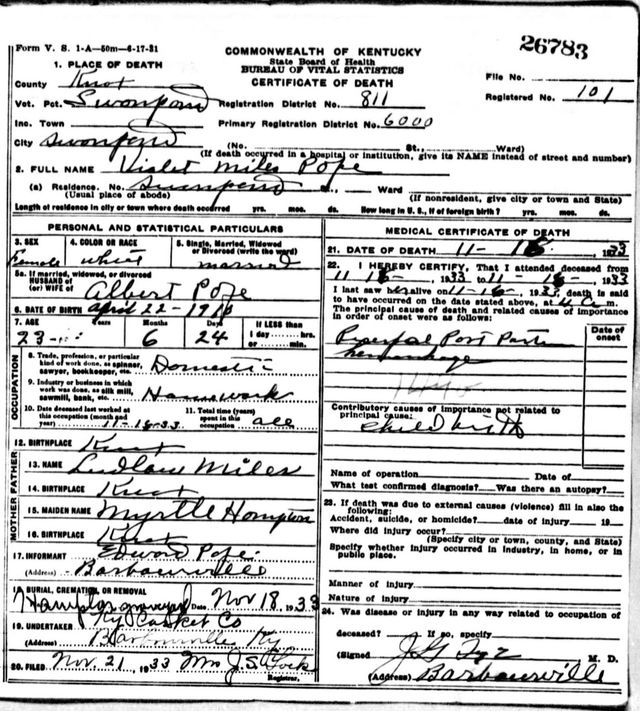 Form V. S. 1-A—50m—6-17-31
26783
COMMONWEALTH OF KENTUCKY
State Board of Health
BUREAU OF VITAL STATISTICS
CERTIFICATE OF DEATH
1. PLACE OF DEATH
County Knox
File No.
Registered No. 101
Vot. Pct. Swanpond Registration District No. 811
Inc. Town Primary Registration District No. 6000
City Swanpond (No. St., Ward)
(If death occurred in a hospital or institution, give its NAME instead of street and number)
2. FULL NAME Violet Miles Pope
(a) Residence. No. Swanpond Ward
(Usual place of abode) (If nonresident, give city or town and State)
Length of residence in city or town where death occurred yrs. mos. ds. How long in U. S., if of foreign birth? yrs. mos. ds.
PERSONAL AND STATISTICAL PARTICULARS
3. SEX 4. COLOR OR RACE 5. Single, Married, Widowed or Divorced (write the word)
Female white married
5a. If married, widowed, or divorced
HUSBAND of
(or) WIFE of Albert Pope
6. DATE OF BIRTH April 22-1910
7. AGE Years Months Days If LESS than
23 6 24 1 day hrs.
or min.
OCCUPATION
8. Trade, profession, or particular
kind of work done, as spinner,
sawyer, bookkeeper, etc. Domestic
9. Industry or business in which
work was done, as silk mill,
sawmill, bank, etc. Housework
10. Date deceased last worked at
this occupation (month and
year) 11-16-33
11. Total time (years)
spent in this
occupation all
12. BIRTHPLACE Knox
MOTHER FATHER
13. NAME Ludlow Miles
14. BIRTHPLACE Knox
15. MAIDEN NAME Myrtle Hampton
16. BIRTHPLACE Knox
17. INFORMANT Edward Pope
(Address) Barbourville
18. BURIAL, CREMATION, OR REMOVAL
graveyard Date Nov 18, 1933
19. UNDERTAKER Ky Casket Co
(Address) Barbourville Ky
20. FILED Nov. 21, 1933 Mrs J. S.
Registrar.
MEDICAL CERTIFICATE OF DEATH
21. DATE OF DEATH 11-16, 1933
22. I HEREBY CERTIFY, That I attended deceased from
11-16-, 1933 to 11-16-, 1933
I last saw her alive on 11-16-, 1933, death is said
to have occurred on the date stated above, at m.
The principal cause of death and related causes of importance
in order of onset were as follows:
Date of
onset
Post Partem
hemorrhage
Contributory causes of importance not related to
principal cause:
Child birth
Name of operation Date of
What test confirmed diagnosis? Was there an autopsy?
23. If death was due to external causes (violence) fill in also the
following:
Accident, suicide, or homicide? date of injury 19
Where did injury occur?
(Specify city or town, county, and State)
Specify whether injury occurred in industry, in home, or in
public place.
Manner of injury
Nature of injury
24. Was disease or injury in any way related to occupation of
deceased? If so, specify
(Signed M. D.
(Address) Barbourville